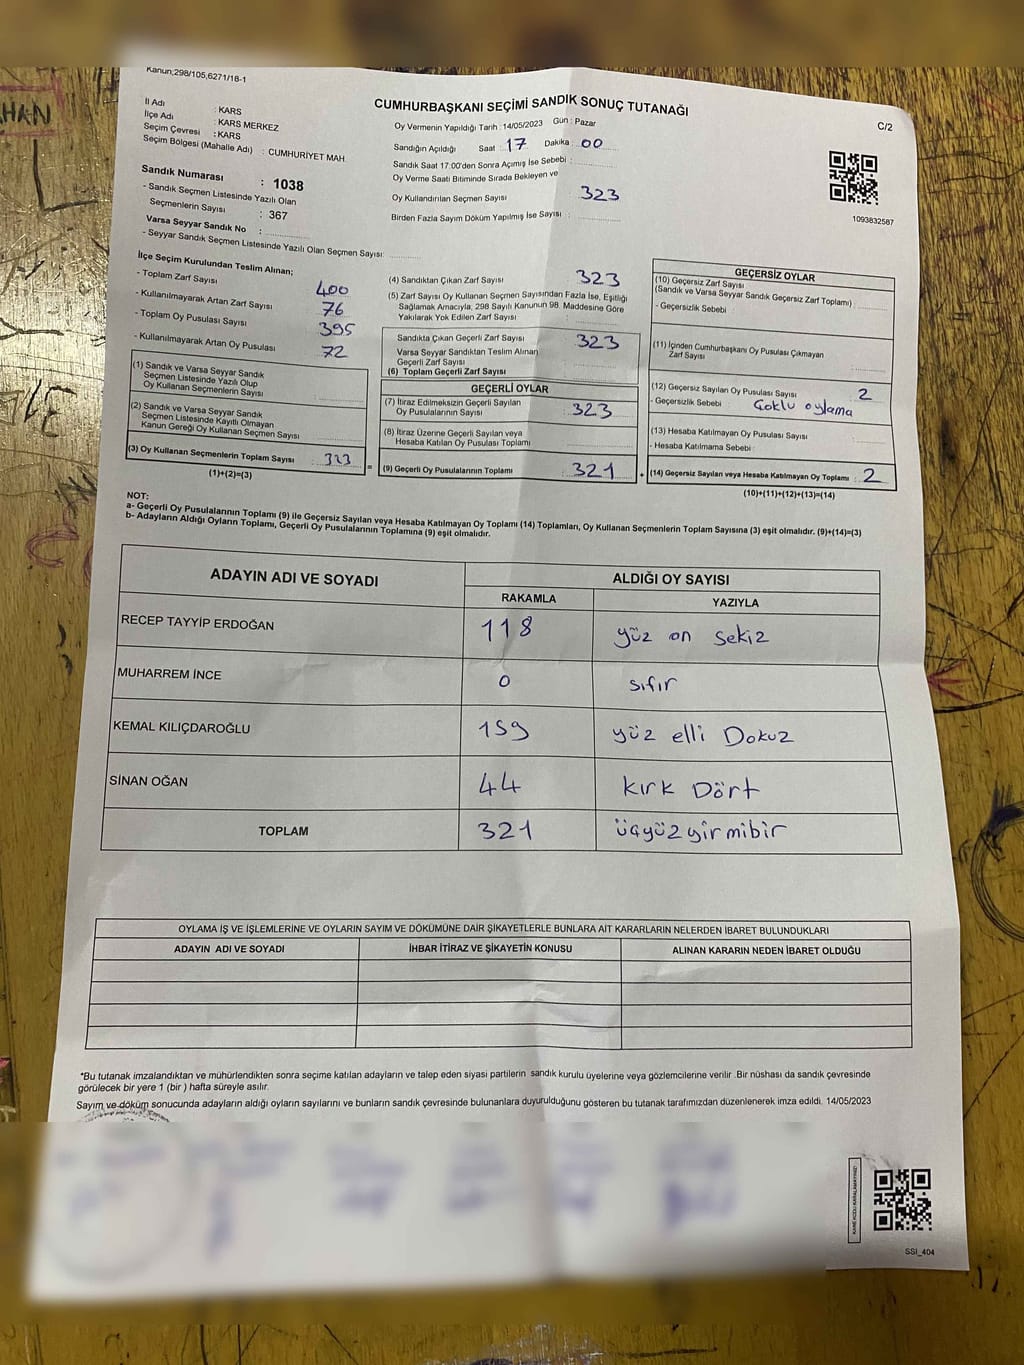 Kanun;298/105,6271/18-1
CUMHURBAŞKANI SEÇİMİ SANDIK SONUÇ TUTANAĞI
C/2
İl Adı : KARS
İlçe Adı : KARS MERKEZ
Seçim Çevresi : KARS
Seçim Bölgesi (Mahalle Adı) : CUMHURİYET MAH.
Sandık Numarası : 1038
- Sandık Seçmen Listesinde Yazılı Olan
Seçmenlerin Sayısı : 367
Varsa Seyyar Sandık No :
- Seyyar Sandık Seçmen Listesinde Yazılı Olan Seçmen Sayısı:
Oy Vermenin Yapıldığı Tarih : 14/05/2023 Gün : Pazar
Sandığın Açıldığı Saat : 17 Dakika : 00
Sandık Saat 17:00'den Sonra Açılmış İse Sebebi :
Oy Verme Saati Bitiminde Sırada Bekleyen ve
Oy Kullandırılan Seçmen Sayısı 323
Birden Fazla Sayım Döküm Yapılmış İse Sayısı :
1093832587
İlçe Seçim Kurulundan Teslim Alınan;
- Toplam Zarf Sayısı 400
- Kullanılmayarak Artan Zarf Sayısı 76
- Toplam Oy Pusulası Sayısı 395
- Kullanılmayarak Artan Oy Pusulası 72
(1) Sandık ve Varsa Seyyar Sandık
Seçmen Listesinde Yazılı Olup
Oy Kullanan Seçmenlerin Sayısı
(2) Sandık ve Varsa Seyyar Sandık
Seçmen Listesinde Kayıtlı Olmayan
Kanun Gereği Oy Kullanan Seçmen Sayısı
(3) Oy Kullanan Seçmenlerin Toplam Sayısı 323
(1)+(2)=(3)
(4) Sandıktan Çıkan Zarf Sayısı 323
(5) Zarf Sayısı Oy Kullanan Seçmen Sayısından Fazla İse, Eşitliği
Sağlamak Amacıyla, 298 Sayılı Kanunun 98. Maddesine Göre
Yakılarak Yok Edilen Zarf Sayısı
Sandıkta Çıkan Geçerli Zarf Sayısı 323
Varsa Seyyar Sandıktan Teslim Alınan
Geçerli Zarf Sayısı
(6) Toplam Geçerli Zarf Sayısı
GEÇERLİ OYLAR
(7) İtiraz Edilmeksizin Geçerli Sayılan
Oy Pusulalarının Sayısı 323
(8) İtiraz Üzerine Geçerli Sayılan veya
Hesaba Katılan Oy Pusulası Toplamı
= (9) Geçerli Oy Pusulalarının Toplamı 321
GEÇERSİZ OYLAR
(10) Geçersiz Zarf Sayısı
(Sandık ve Varsa Seyyar Sandık Geçersiz Zarf Toplamı)
- Geçersizlik Sebebi :
(11) İçinden Cumhurbaşkanı Oy Pusulası Çıkmayan
Zarf Sayısı
(12) Geçersiz Sayılan Oy Pusulası Sayısı 2
- Geçersizlik Sebebi : Çoklu oylama
(13) Hesaba Katılmayan Oy Pusulası Sayısı
- Hesaba Katılmama Sebebi :
+ (14) Geçersiz Sayılan veya Hesaba Katılmayan Oy Toplamı : 2
(10)+(11)+(12)+(13)=(14)
NOT:
a- Geçerli Oy Pusulalarının Toplamı (9) ile Geçersiz Sayılan veya Hesaba Katılmayan Oy Toplamı (14) Toplamları, Oy Kullanan Seçmenlerin Toplam Sayısına (3) eşit olmalıdır. (9)+(14)=(3)
b- Adayların Aldığı Oyların Toplamı, Geçerli Oy Pusulalarının Toplamına (9) eşit olmalıdır.
ADAYIN ADI VE SOYADI ALDIĞI OY SAYISI
RAKAMLA YAZIYLA
RECEP TAYYİP ERDOĞAN 118 yüz on sekiz
MUHARREM İNCE 0 sıfır
KEMAL KILIÇDAROĞLU 159 yüz elli Dokuz
SİNAN OĞAN 44 kırk Dört
TOPLAM 321 üçyüzyirmibir
OYLAMA İŞ VE İŞLEMLERİNE VE OYLARIN SAYIM VE DÖKÜMÜNE DAİR ŞİKAYETLERLE BUNLARA AİT KARARLARIN NELERDEN İBARET BULUNDUKLARI
ADAYIN ADI VE SOYADI İHBAR İTİRAZ VE ŞİKAYETİN KONUSU ALINAN KARARIN NEDEN İBARET OLDUĞU
*Bu tutanak imzalandıktan ve mühürlendikten sonra seçime katılan adayların ve talep eden siyasi partilerin sandık kurulu üyelerine veya gözlemcilerine verilir .Bir nüshası da sandık çevresinde
görülecek bir yere 1 (bir ) hafta süreyle asılır.
Sayım ve döküm sonucunda adayların aldığı oyların sayılarını ve bunların sandık çevresinde bulunanlara duyurulduğunu gösteren bu tutanak tarafımızdan düzenlenerek imza edildi. 14/05/2023
SSİ_404